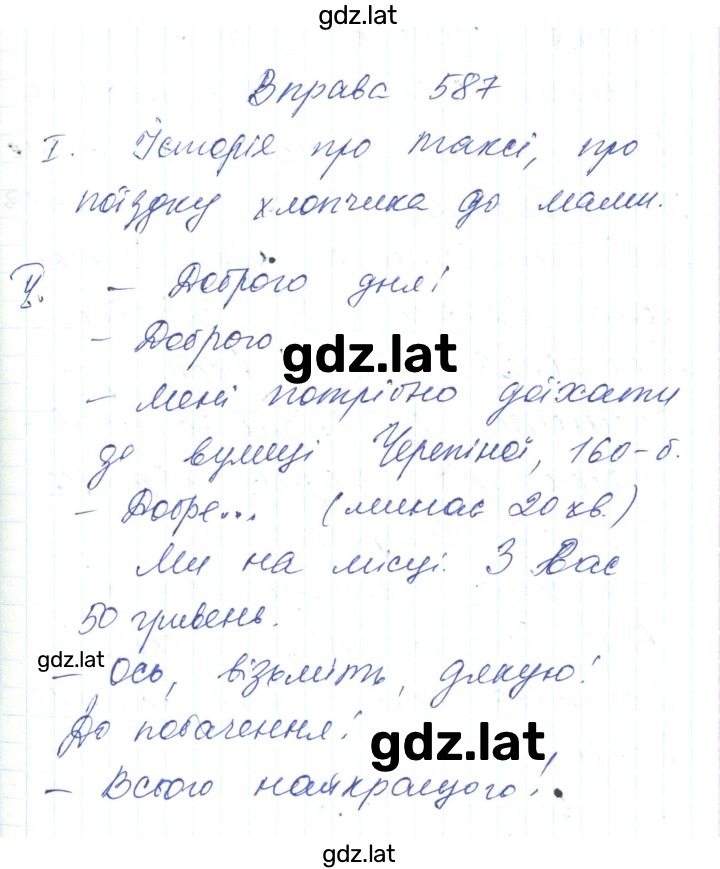 gdz.lat
Вправа 587
I. Історія про таксі, про
поїздку хлопчика до мами.
- Доброго дня!
- Доброго.
gdz.lat
- Мені потрібно доїхати
до вулиці Черепіної, 160-б.
- Добре... (минає 20 хв.)
Ми на місці. З Вас
50 гривень.
gdz.lat
- Ось, візьміть, дякую!
До побачення!
gdz.lat
- Всього найкращого!
gdz.lat